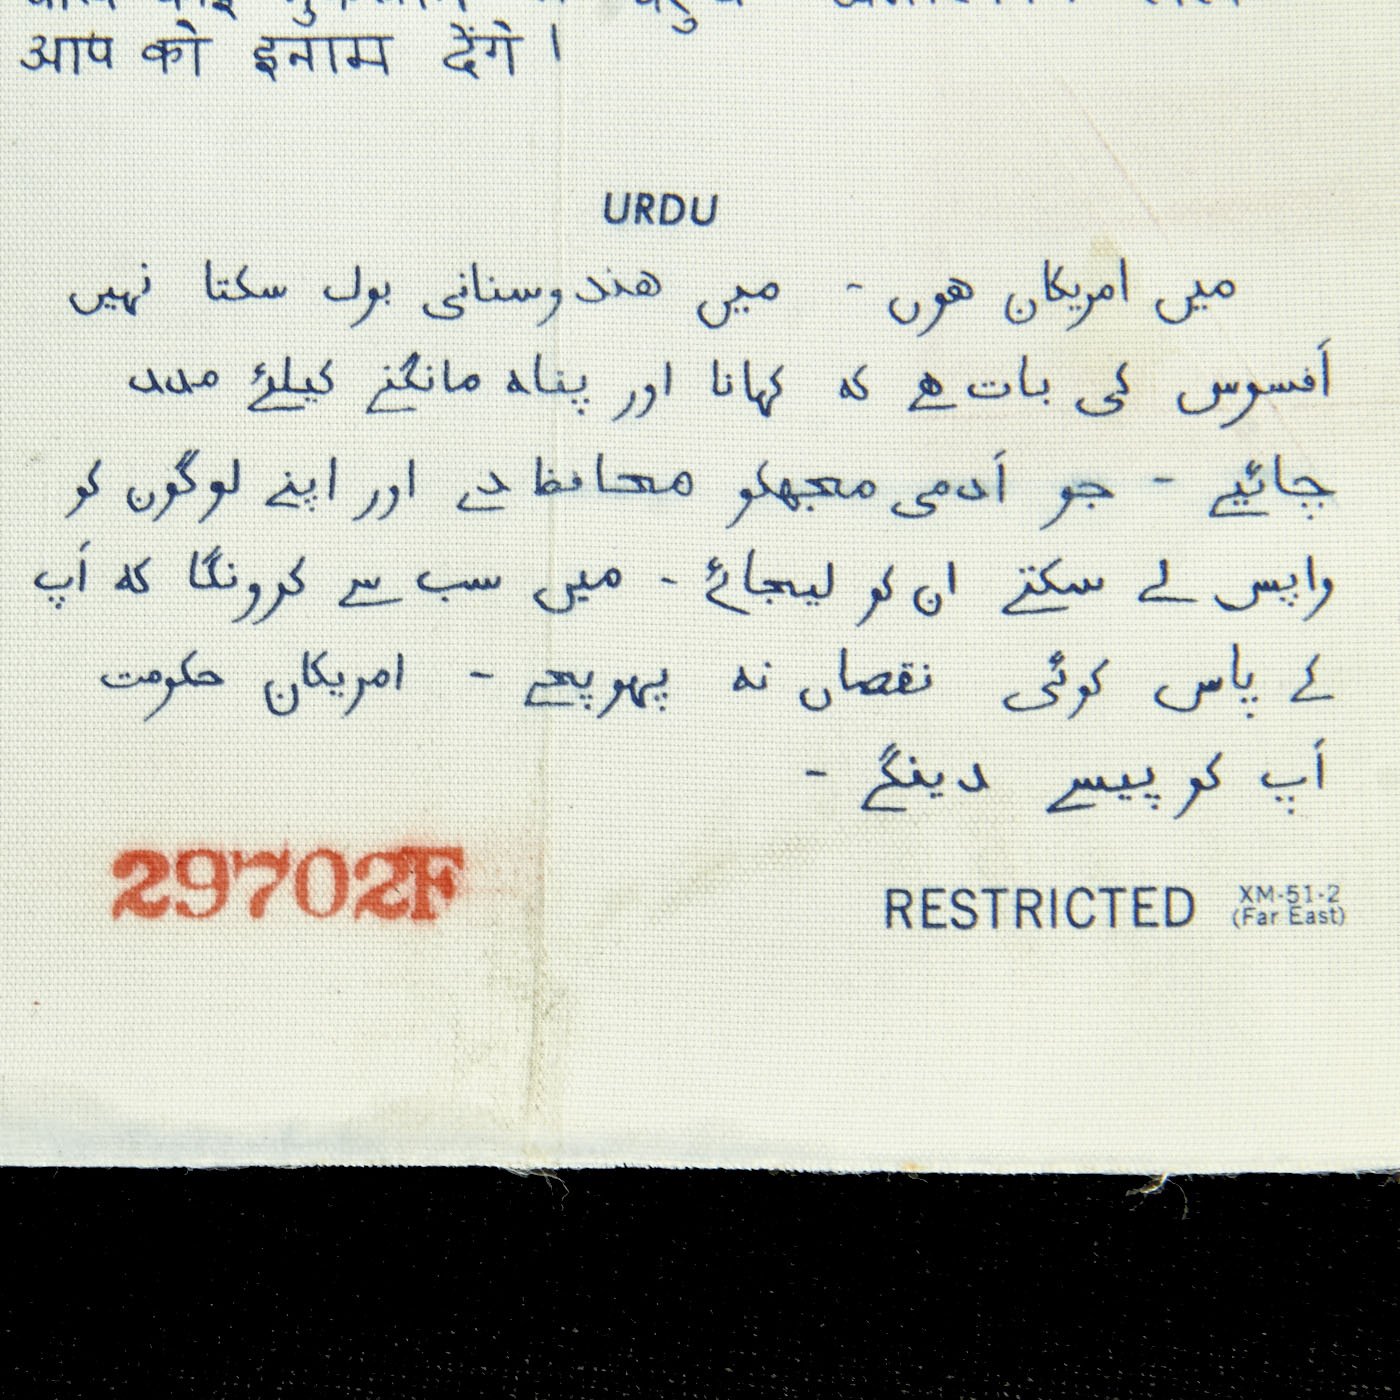 आप को इनाम देंगे।
URDU
میں امریکان ہوں - میں هندوستانی بول سکتا نہیں
اَفسوس کی بات ہے کہ کہانا اور پناہ مانگنے کیلئے مدد
چائیے - جو اَدمی مجھکو محافظ دے اور اپنے لوگوں کو
واپس لے سکتے ان کو لیجائے - میں سب سے کرونگا کہ اَپ
کے پاس کوئی نقصان نہ پہوپچے - امریکان حکومت
اَپ کو پیسے دینگے -
29702F
RESTRICTED XM-51-2
(Far East)